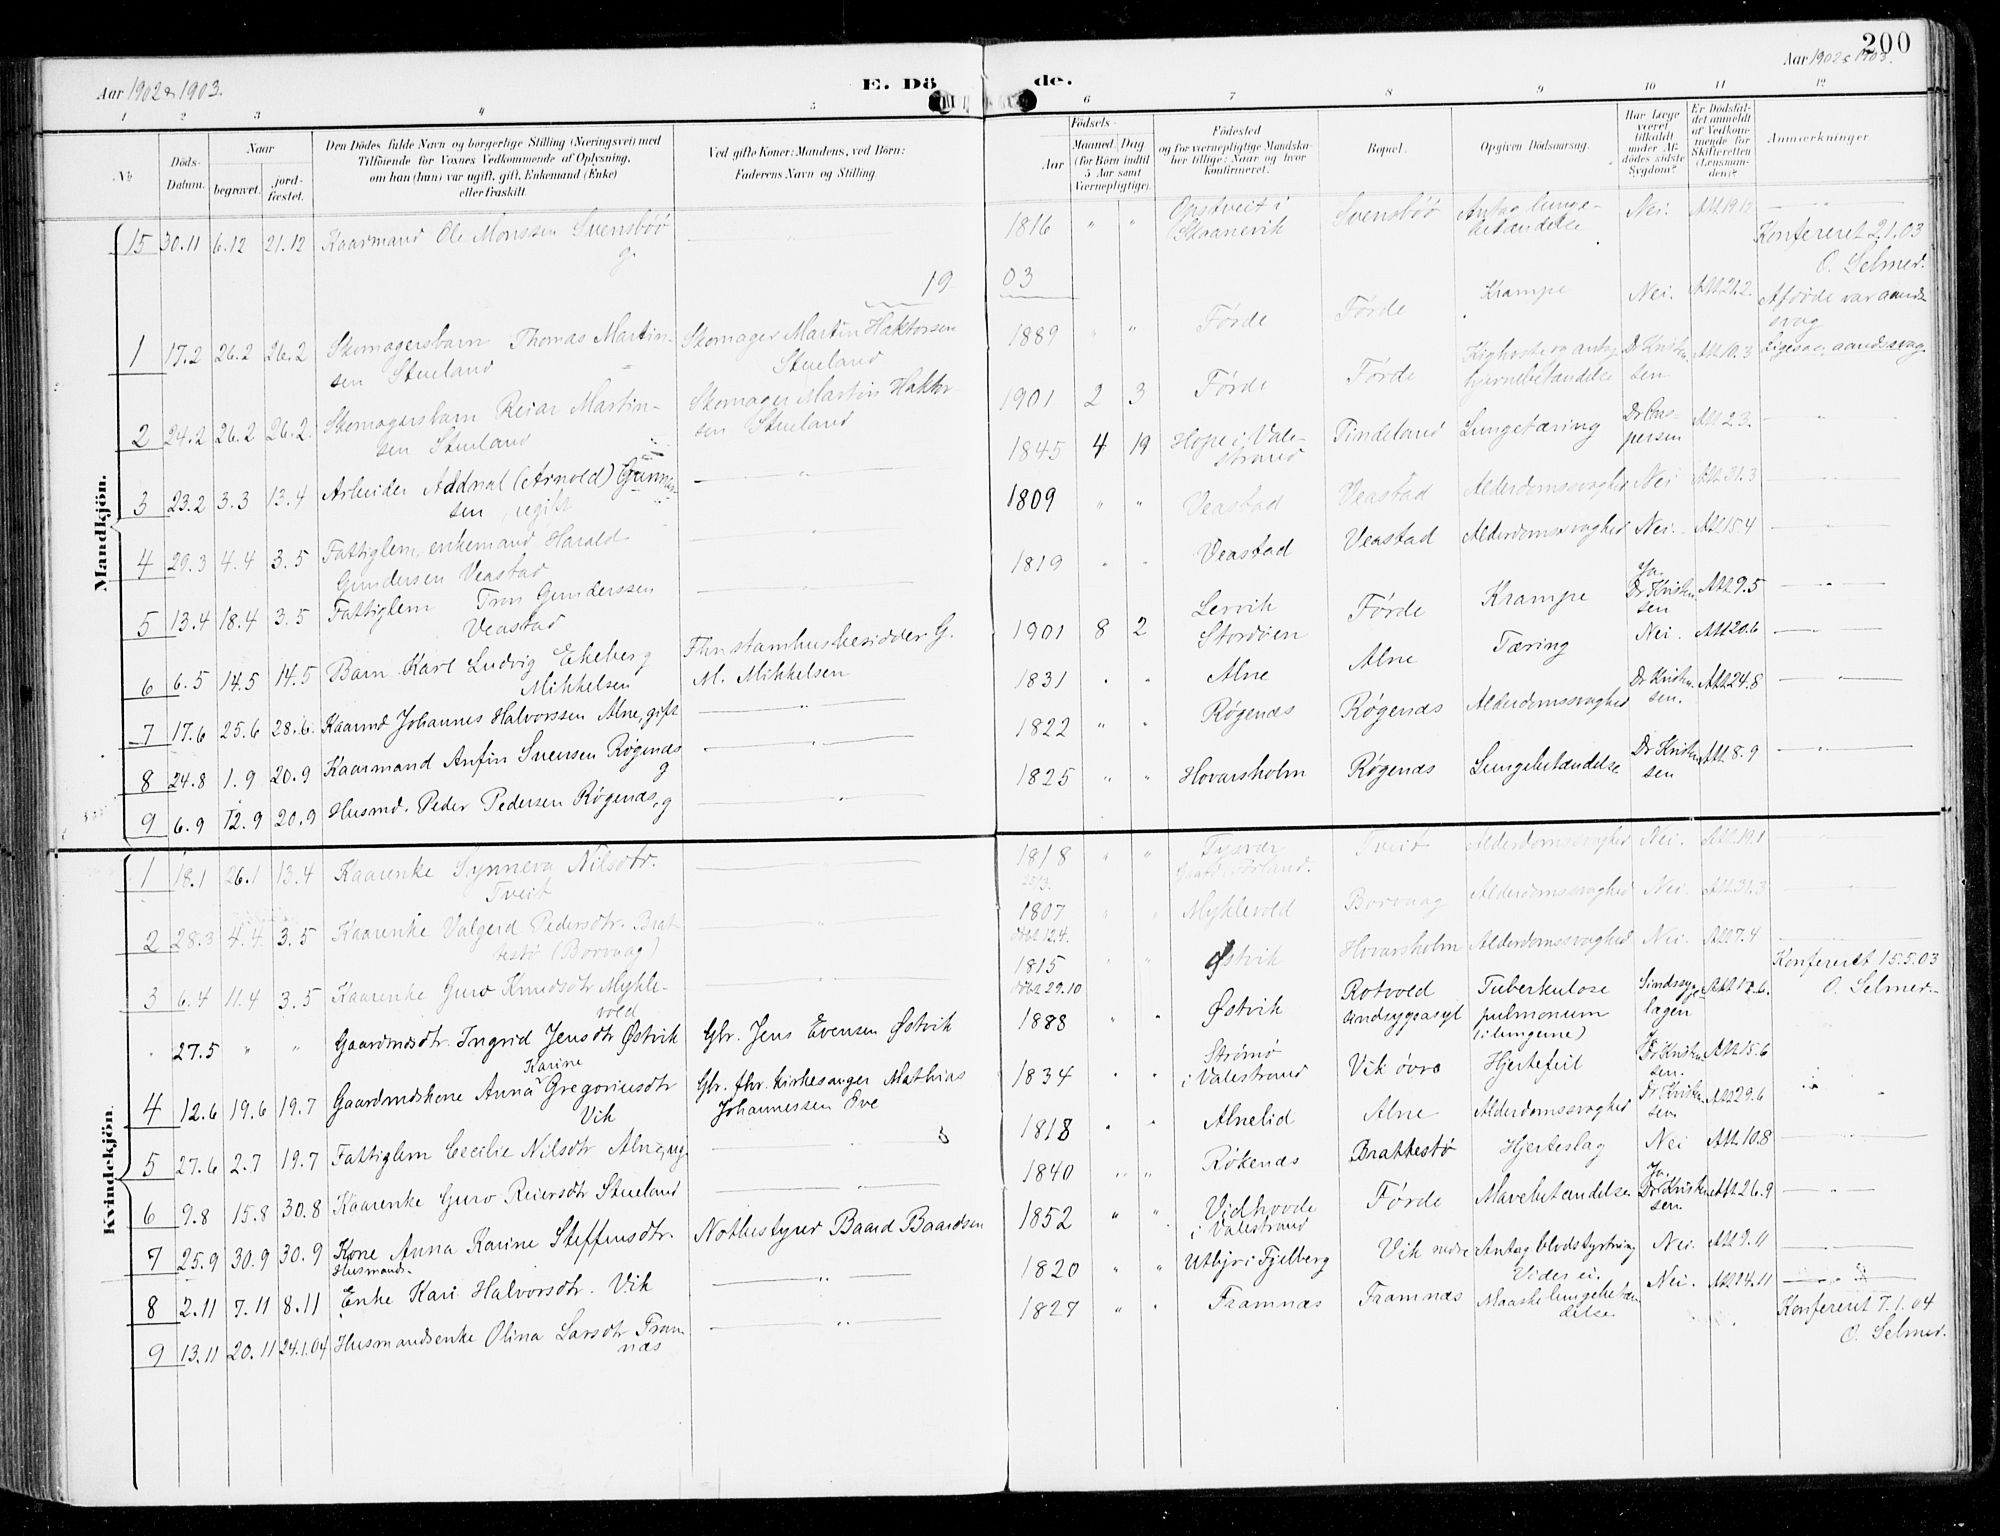 200
Aar 1902 & 1903.
E. Dö
de.
Aar 1902 & 1903.
1 2 3 4 5 6 7 8 9 10 11 12
No.
Döds-Datum.
Naar
begravet.
jord-fæstet.
Den Dödes fulde Navn og borgerlige Stilling (Næringsvei) med
Tilföiende for Voxnes Vedkommende af Oplysning,
om han (hun) var ugift, gift, Enkemand (Enke)
eller fraskilt.
Ved gifte Koner: Mandens, ved Börn:
Faderens Navn og Stilling.
Födsels-
Aar
Maaned
(for Börn indtil
5 Aar samt
Værnepligtige).
Dag
Födested
og for værnepligtige Mandska-
ber tillige: Naar og hvor
konfirmeret.
Bopæl.
Opgiven Dödsaarsag.
Har Læge
været
tilkaldt
under Af-
dödes sidste
Sygdom?
Er Dödsfal-
det anmeldt
af Vedkom-
mende for
Skifteretten
(Lensman-
den)?
Anmærkninger.
Mandkjön.
15 30.11 6.12 21.12 Kaarmand Ole Monssen Svensböö g. " 1816 " " Opstveit i Skaanevik Svensböö Antag lunge-betændelse Nei. Att 19.12
Konfereret 2.1.03
O. Selmer.
19 03
1 17.2 26.2 26.2 Skomagersbarn Thomas Martin-sen Stueland Skomager Martin Haktorsen Stueland 1889 " " Førde Førde Krampe Nei. Att 21.2. Afdøde var aands-svag
2 24.2 26.2 26.2. Skomagersbarn Reiar Martin-sen Stueland Skomager Martin Haktor-sen Stueland 1901 2 3 Førde Førde Kighoste og antag hjernebetændelse Dr Kristen-sen Att 10.3 Ligesaa aandssvag
3 23.2 3.3 13.4 Arbeider Addnal (Arnold) Gunner-sen, ugift " 1845 4 19 Hope i Vale-strand Tindeland Lungetæring Dr Cas-persen Att 2.3. "
4 29.3 4.4 3.5 Fattiglem, enkemand Harald Gundersen Veastad " 1809 " " Veastad Veastad Alderdomssvaghed Nei Att 31.3 "
5 13.4 18.4 3.5 Fattiglem Tron Gunderssen Veastad " 1819 " " Veastad Veastad Alderdomssvaghed Nei. Att 15.4 "
6 6.5 14.5 14.5 Barn Karl Ludvig Ekeberg Mikkelsen Fhr stamhusbesidder G. M. Mikkelsen 1901 8 2 Lervik Stordøen Førde Krampe Ja. Dr Kristen-sen Att 9.5 "
7 17.6 25.6 28.6. Kaarmd Johannes Halvorssen Alne, gift " 1831 " " Alne Alne Tæring Nei. Att 20.6 "
8 24.8 1.9 20.9 Kaarmand Anfin Svensen Røgenæs g " 1822 " " Røgenæs Røgenæs Alderdomssvaghed Dr Kristen-sen. Att 24.8 "
9 6.9 12.9 20.9 Husmd. Peder Pedersen Røgenæs, g " 1825 " " Hovarsholm Røgenæs Lungebetændelse Dr Kristen-sen Att 8.9 "
Kvindekjön.
1 18.1 26.1 13.4 Kaarenke Synneva Nilsdtr. Tveit " 1818 " " Tysvær Tveit Alderdomssvaghed Nei. Att 19.1 "
2 28.3 4.4. 3.5 Kaarenke Valgerd Pedersdtr. Brat-testø (Borvaag) " 1807 " " Myklevold Borvaag Alderdomssvaghed Nei Att 31.3 "
3 6.4 11.4 3.5 Kaarenke Guro Knudsdtr Mykle-vold " 1815 " " Østvik Hovarsholm Alderdomssvaghed Nei. Att 7.4
Konfereret 15.5.03
O. Selmer
27.5 " " Gaardmdsdtr. Ingrid Jensdtr Østvik Gbr. Jens Evensen Østvik 1888 " " Østvik Rotvold sindsygeasyl Tuberkulose pulmonum (i lungerne) Sindssyge-lægen Att 12.6.
4 12.6 19.6 19.7 Gaardmdskone Anna Karine Gregoriusdtr Vik Gbr. fhr. kirkesanger Mathias Johannessen Eve 1834 " " Strømø i Valestrand Vik övre Hjertefeil Ja Dr Kristen-sen. Att 15.6 "
5 27.6 2.7 19.7 Fattiglem Cecilie Nilsdtr Alne, ug. " 1818 " " Alnelid Alne Alderdomssvaghed Dr Kristen-sen Att 29.6 "
6 9.8 15.8 30.8 Kaarenke Guro Reiersdtr Stueland " 1840 " " Røkenæs Brattestø Hjerteslag Nei Att 10.8 "
7 25.9 30.9 30.9 Kone Anna Karine Steffensdtr. Notbestyrer Baard Baardsen 1852 " " Vidhovde i Valestrand Førde Mavebetændelse Ja. Dr Kristen-sen. Att 26.9 "
8 2.11 7.11 8.11 Husmands-Enke Kari Halvorsdtr. Vik " 1820 " " Utbjo i Fjelberg Vik nedre Antag blodstyrtning Nei. Att 9.11 "
9 13.11 20.11 24.1.04 Husmandsenke Olina Larsdtr Fram-næs " 1827 " " Framnæs Framnæs Vides ei. Maaske lungebetæn-delse Nei. Att 14.11 "
Konfereret 7.1.04
O. Selmer.